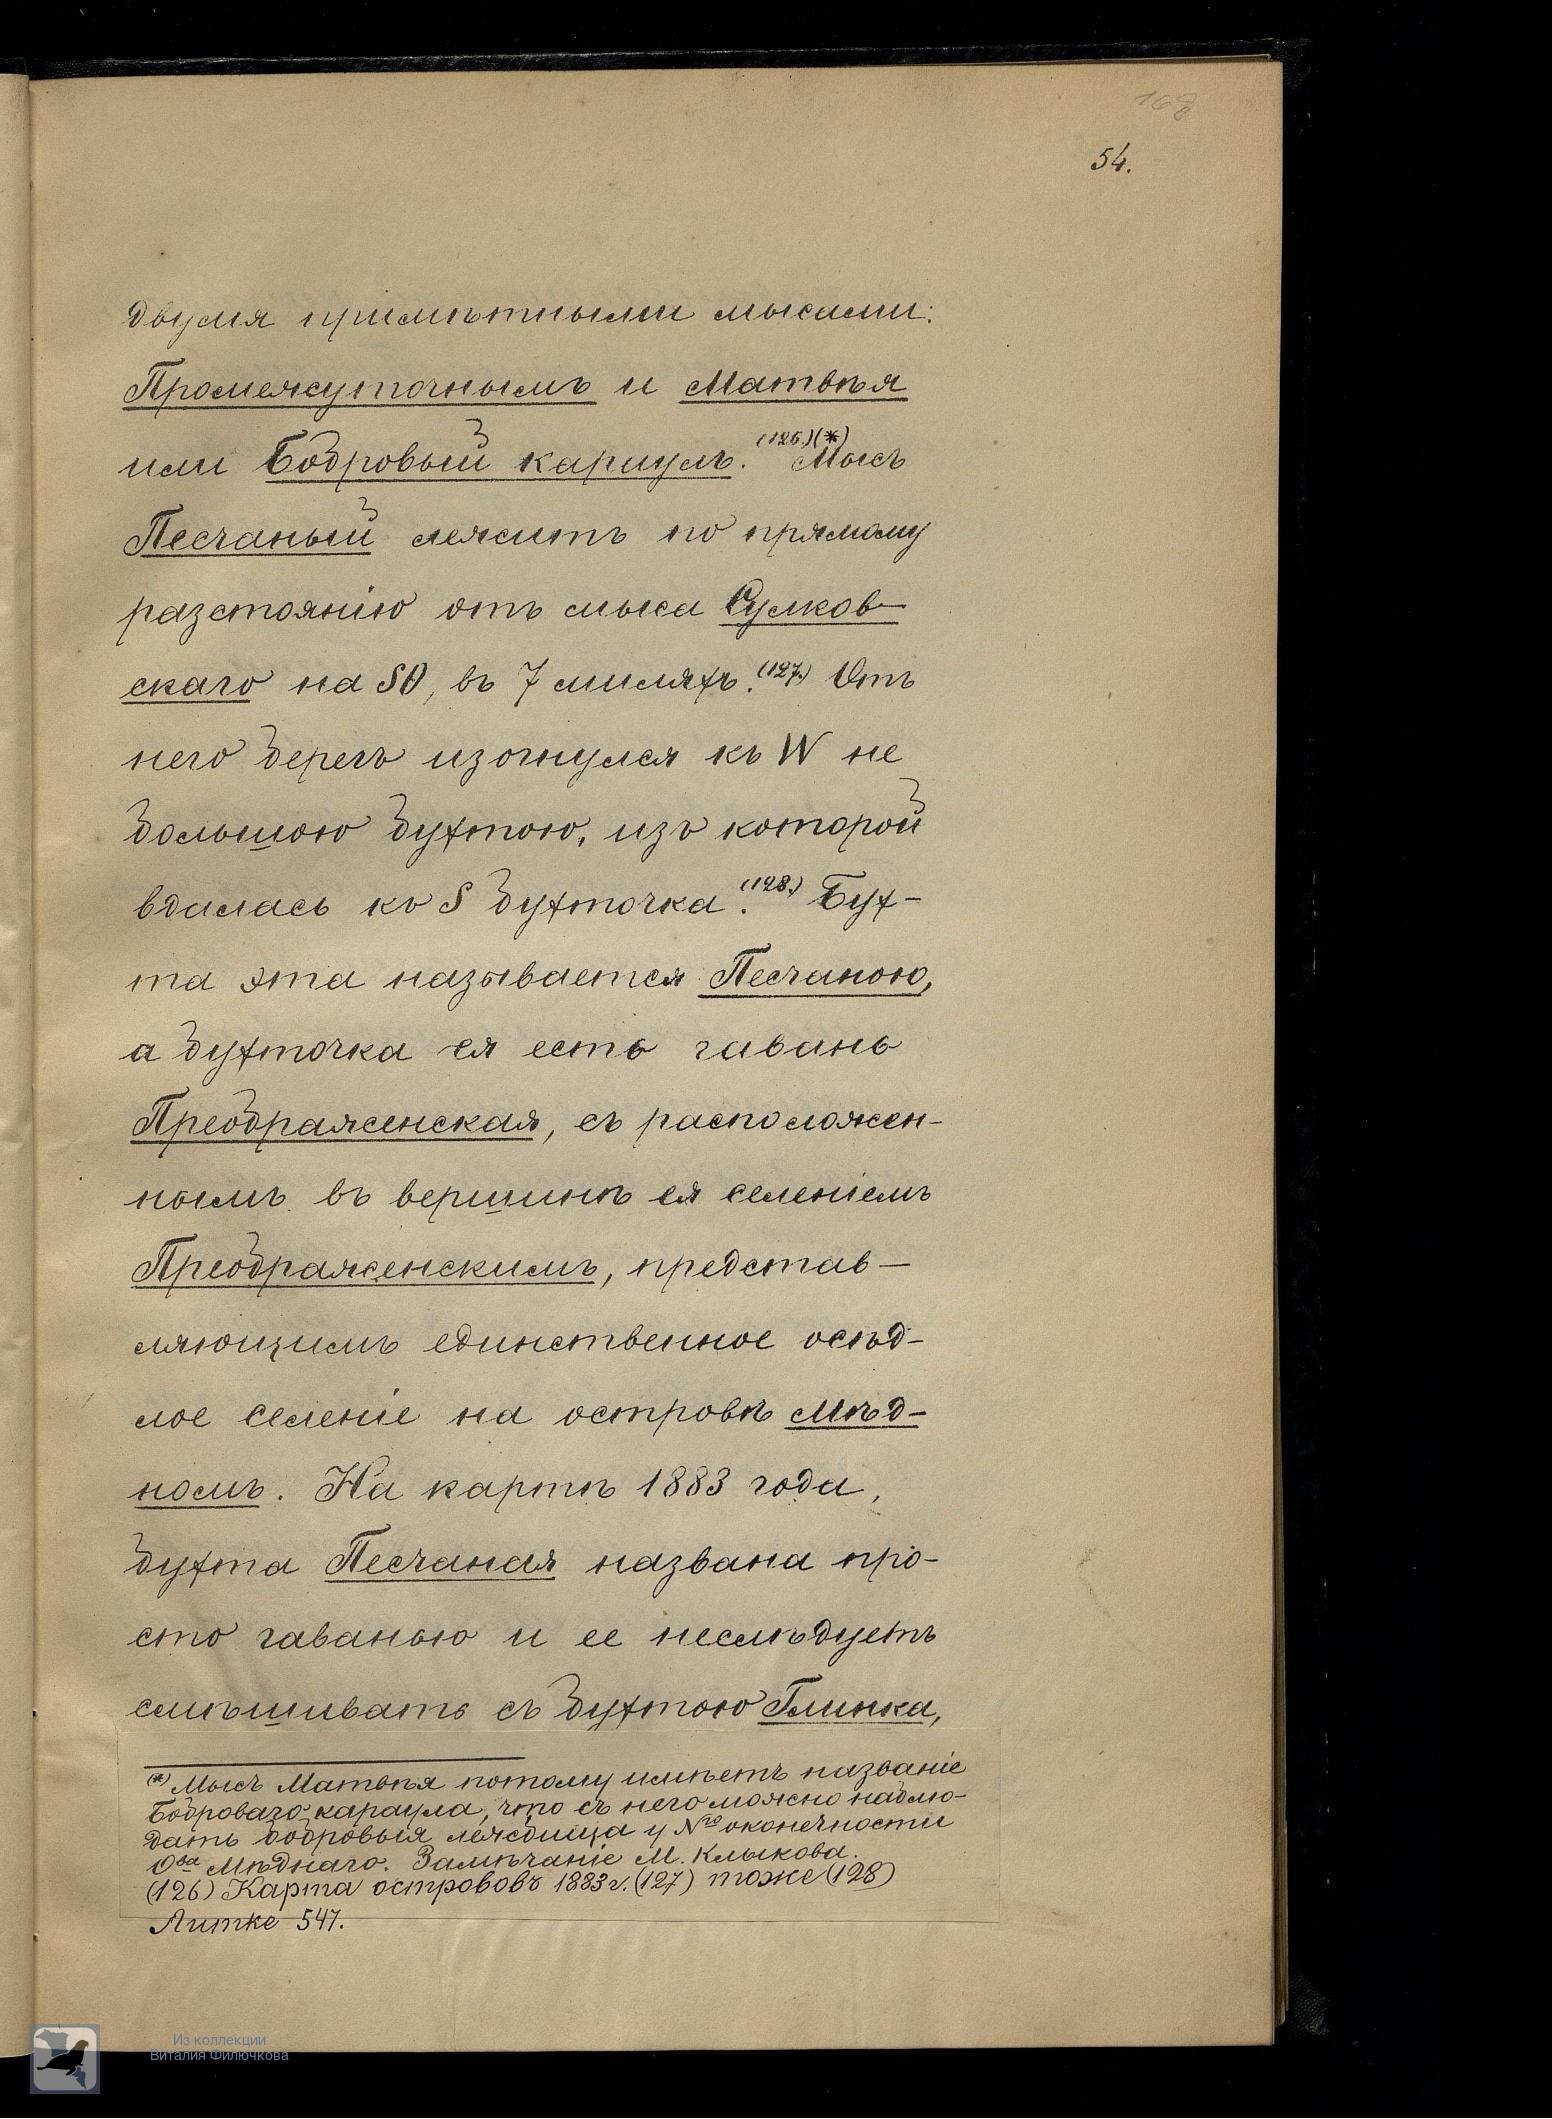 168
54.
двумя примѣтными мысами:
Промежуточнымъ и Матвѣя
или Бобровый караулъ.(126.)(*) Мысъ
Песчаный лежитъ по прямому
разстоянію отъ мыса Сулков-
скаго на SO, въ 7 миляхъ.(127.) Отъ
него берегъ изогнулся къ W не
большою бухтою, изъ которой
вдалась къ S бухточка.(128.) Бух-
та эта называется Песчаною,
а бухточка ея есть гавань
Преображенская, съ расположен-
нымъ въ вершинѣ ея селеніемъ
Преображенскимъ, представ-
ляющимъ единственное осѣд-
лое селеніе на островѣ Мѣд-
номъ. На картѣ 1883 года,
бухта Песчаная названа про-
сто гаванью и ее неслѣдуетъ
смѣшивать съ бухтою Глинка,
(*) Мысъ Матвѣя потому имѣетъ названіе
Боброваго караула, что съ него можно наблю-
дать бобровыя лежбища у Nго оконечности
Ова Мѣднаго. Замѣчаніе М. Клыкова.
(126) Карта острововъ 1883 г. (127) тоже (128)
Литке 547.
Из коллекции
Виталия Филючкова